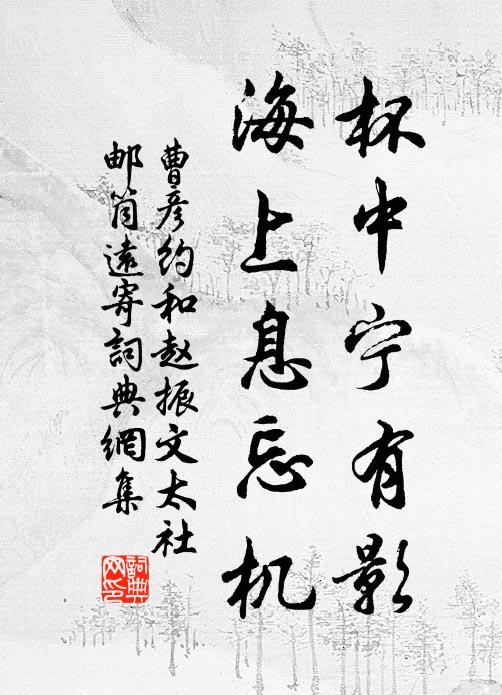 杯中宁有影
海上息忘机
曹彦约和赵振文太社
邮筒远寄詞典網集
詞典网印